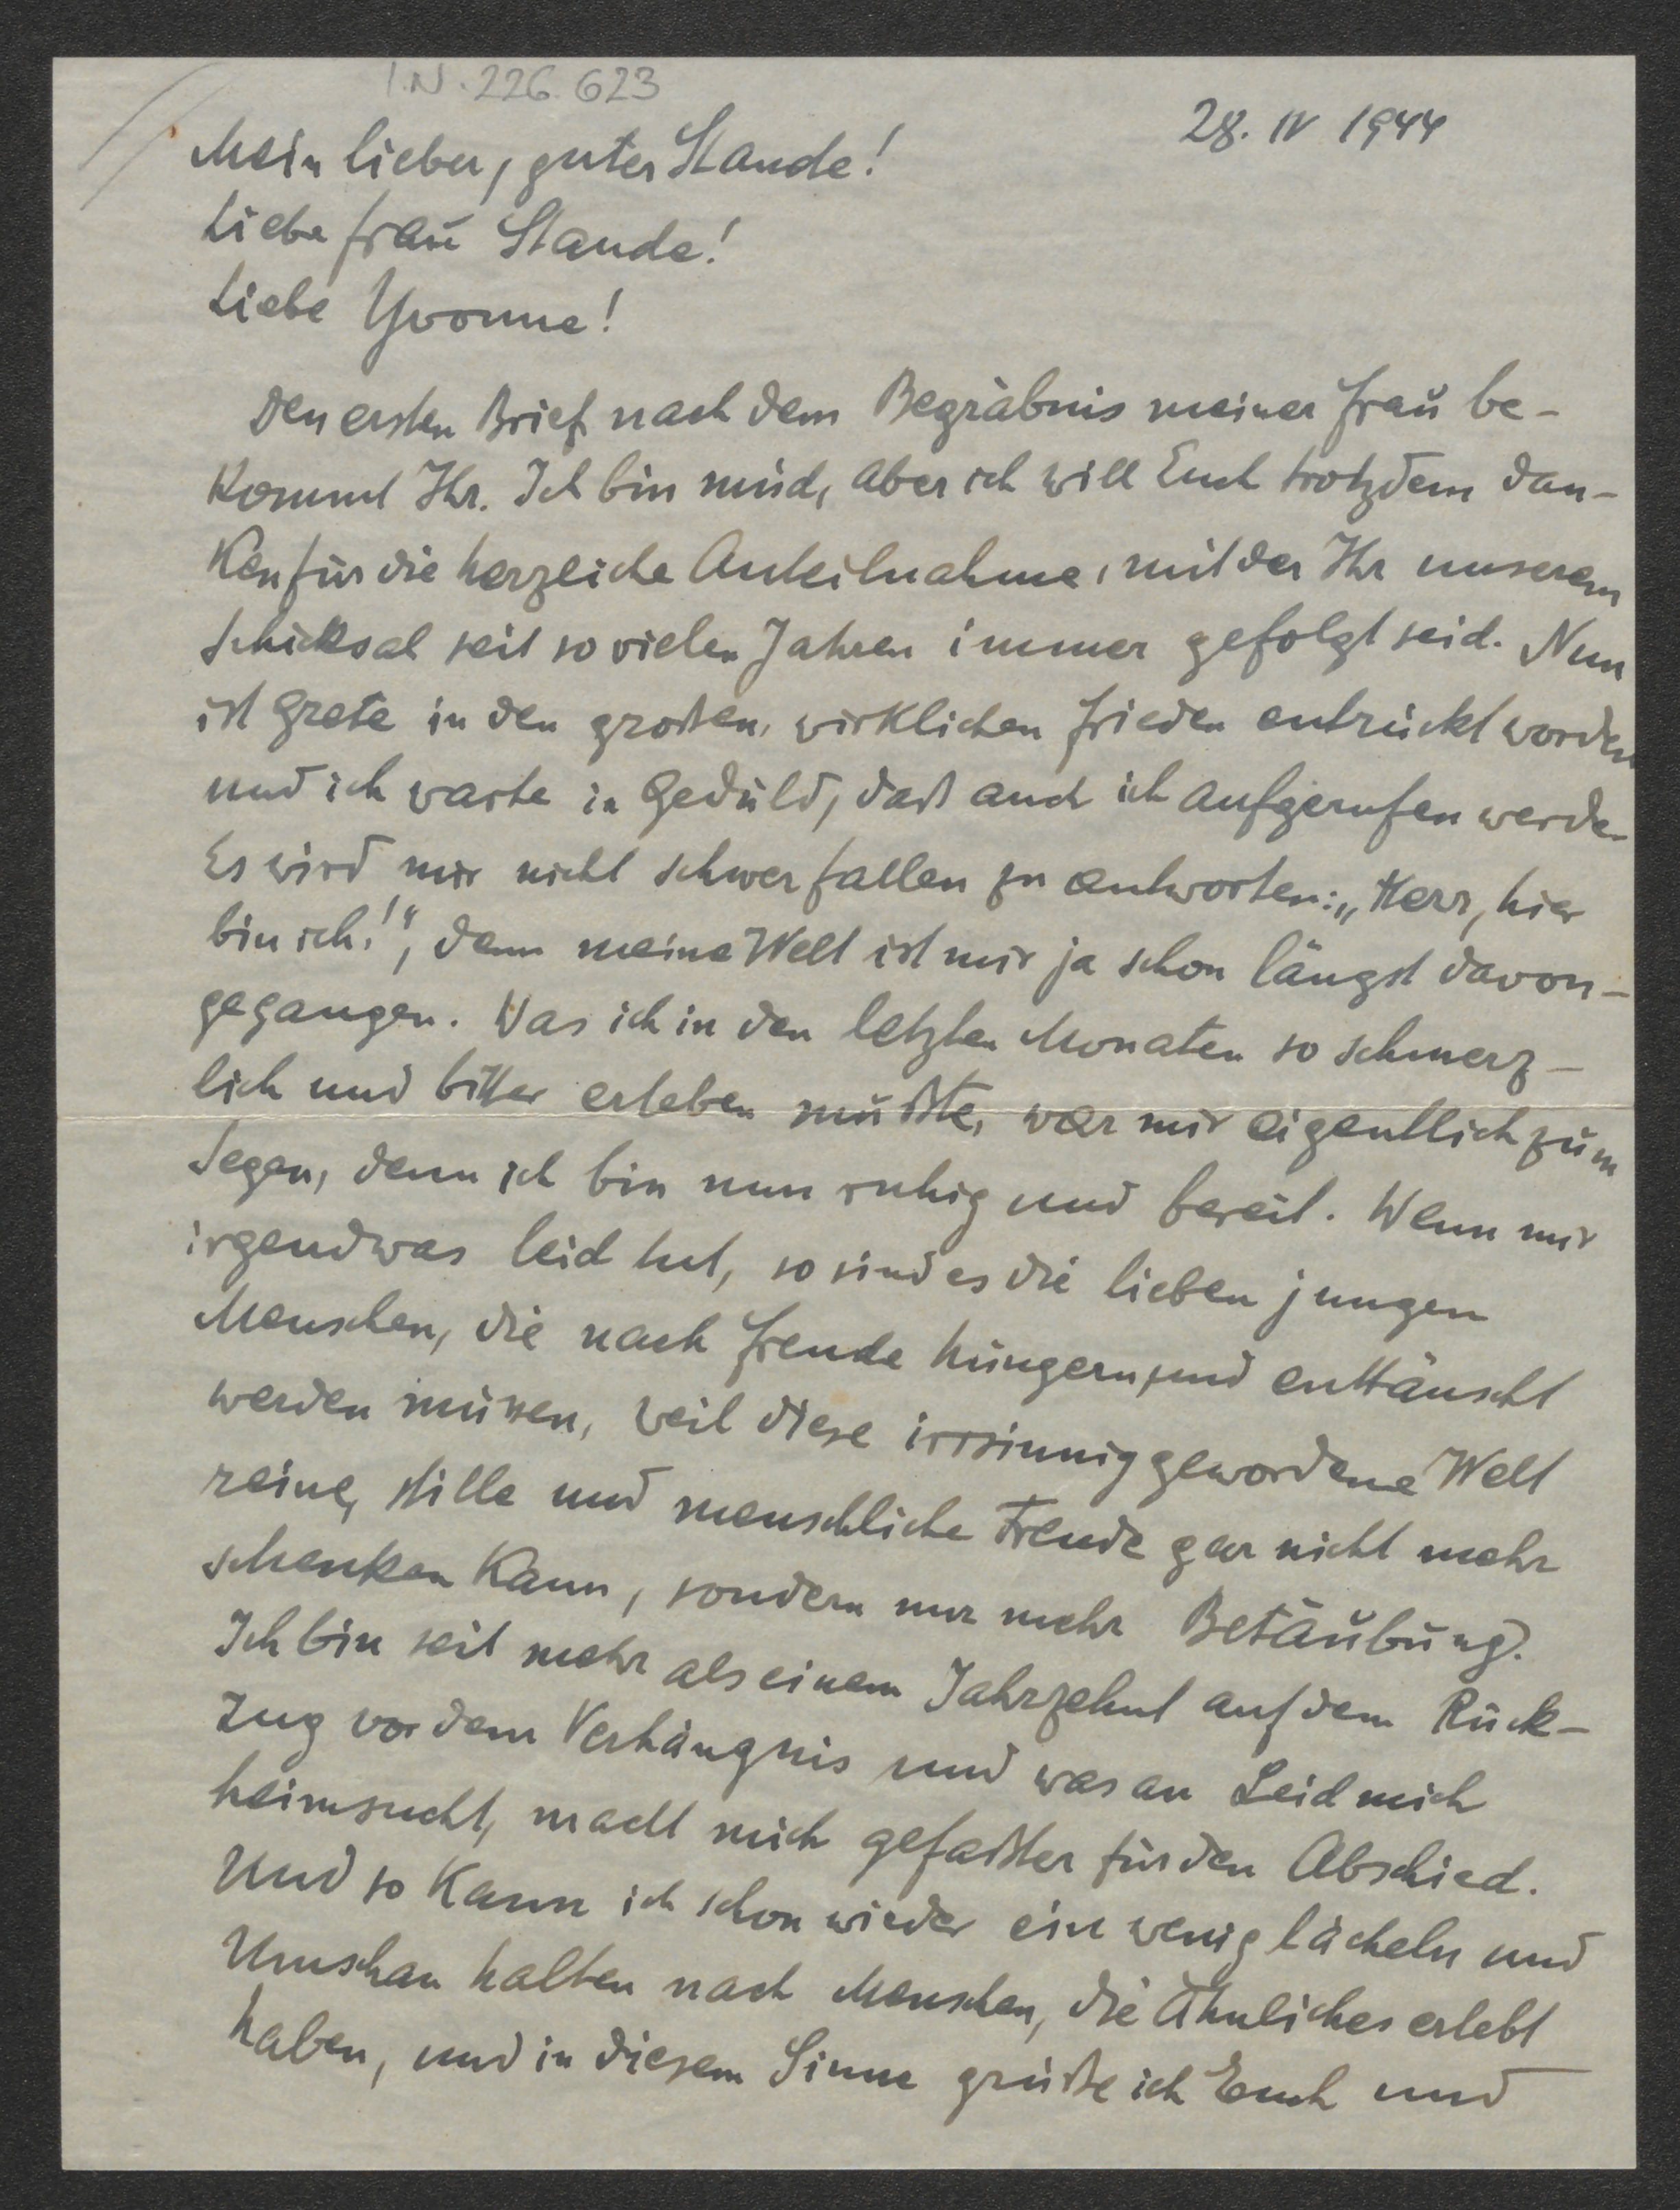 I.N. 226.623
28. IV 1944
Mein lieber, guter Staude!
Liebe Frau Staude!
Liebe Yvonne!
Den ersten Brief nach dem Begräbnis meiner Frau be-
kommt Ihr. Ich bin müd, aber ich will Euch trotzdem dan-
ken für die herzliche Anteilnahme, mit der Ihr unserem
Schicksal seit so vielen Jahren immer gefolgt seid. Nun
ist Grete in den großen, wirklichen Frieden entrückt worden
und ich warte in Geduld, daß auch ich aufgerufen werde.
Es wird mir nicht schwer fallen zu antworten: „Herr, hier
bin ich!“, denn meine Welt ist mir ja schon längst davon-
gegangen. Was ich in den letzten Monaten so schmerz-
lich und bitter erleben mußte, war mir eigentlich zum
Segen, denn ich bin nun ruhig und bereit. Wenn mir
irgendwas leid tut, so sind es die lieben jungen
Menschen, die nach Freude hungern, und enttäuscht
werden müssen, weil diese irrsinnig gewordene Welt
reine, stille und menschliche Freude gar nicht mehr
schenken kann, sondern nur mehr Betäubung.
Ich bin seit mehr als einem Jahrzehnt auf dem Rück-
zug vor dem Verhängnis und was an Leid mich
heimsucht, macht mich gefaßter für den Abschied.
Und so kann ich schon wieder ein wenig lächeln und
Umschau halten nach Menschen, die Ähnliches erlebt
haben, und in diesem Sinne grüße ich Euch und